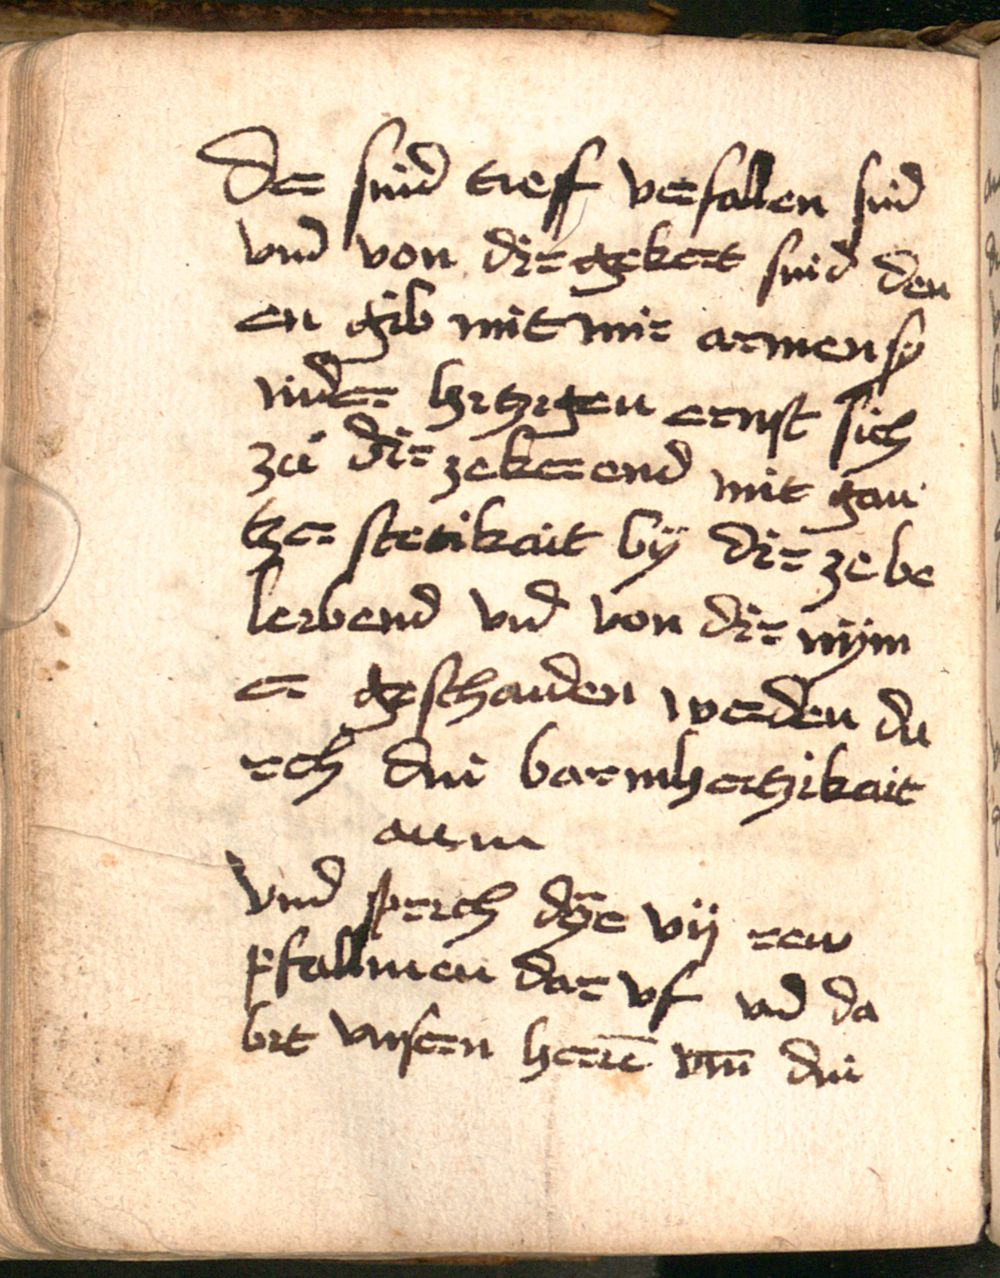 der sünd tieff verfallen sind
vnd von dir gekert sind den
en gib mit mir armen sy
nder hitzigen ernst sich
zů dir zekerend mit gan
tzer stetikait by dir ze be
leibend vnd von dir nÿm
er geschaiden werden du
rch din barmhertzikait
amen
Vnd sprich dÿe vij rew
psallmen dar vf vnd da
bit vnsern herrē vm̄ din